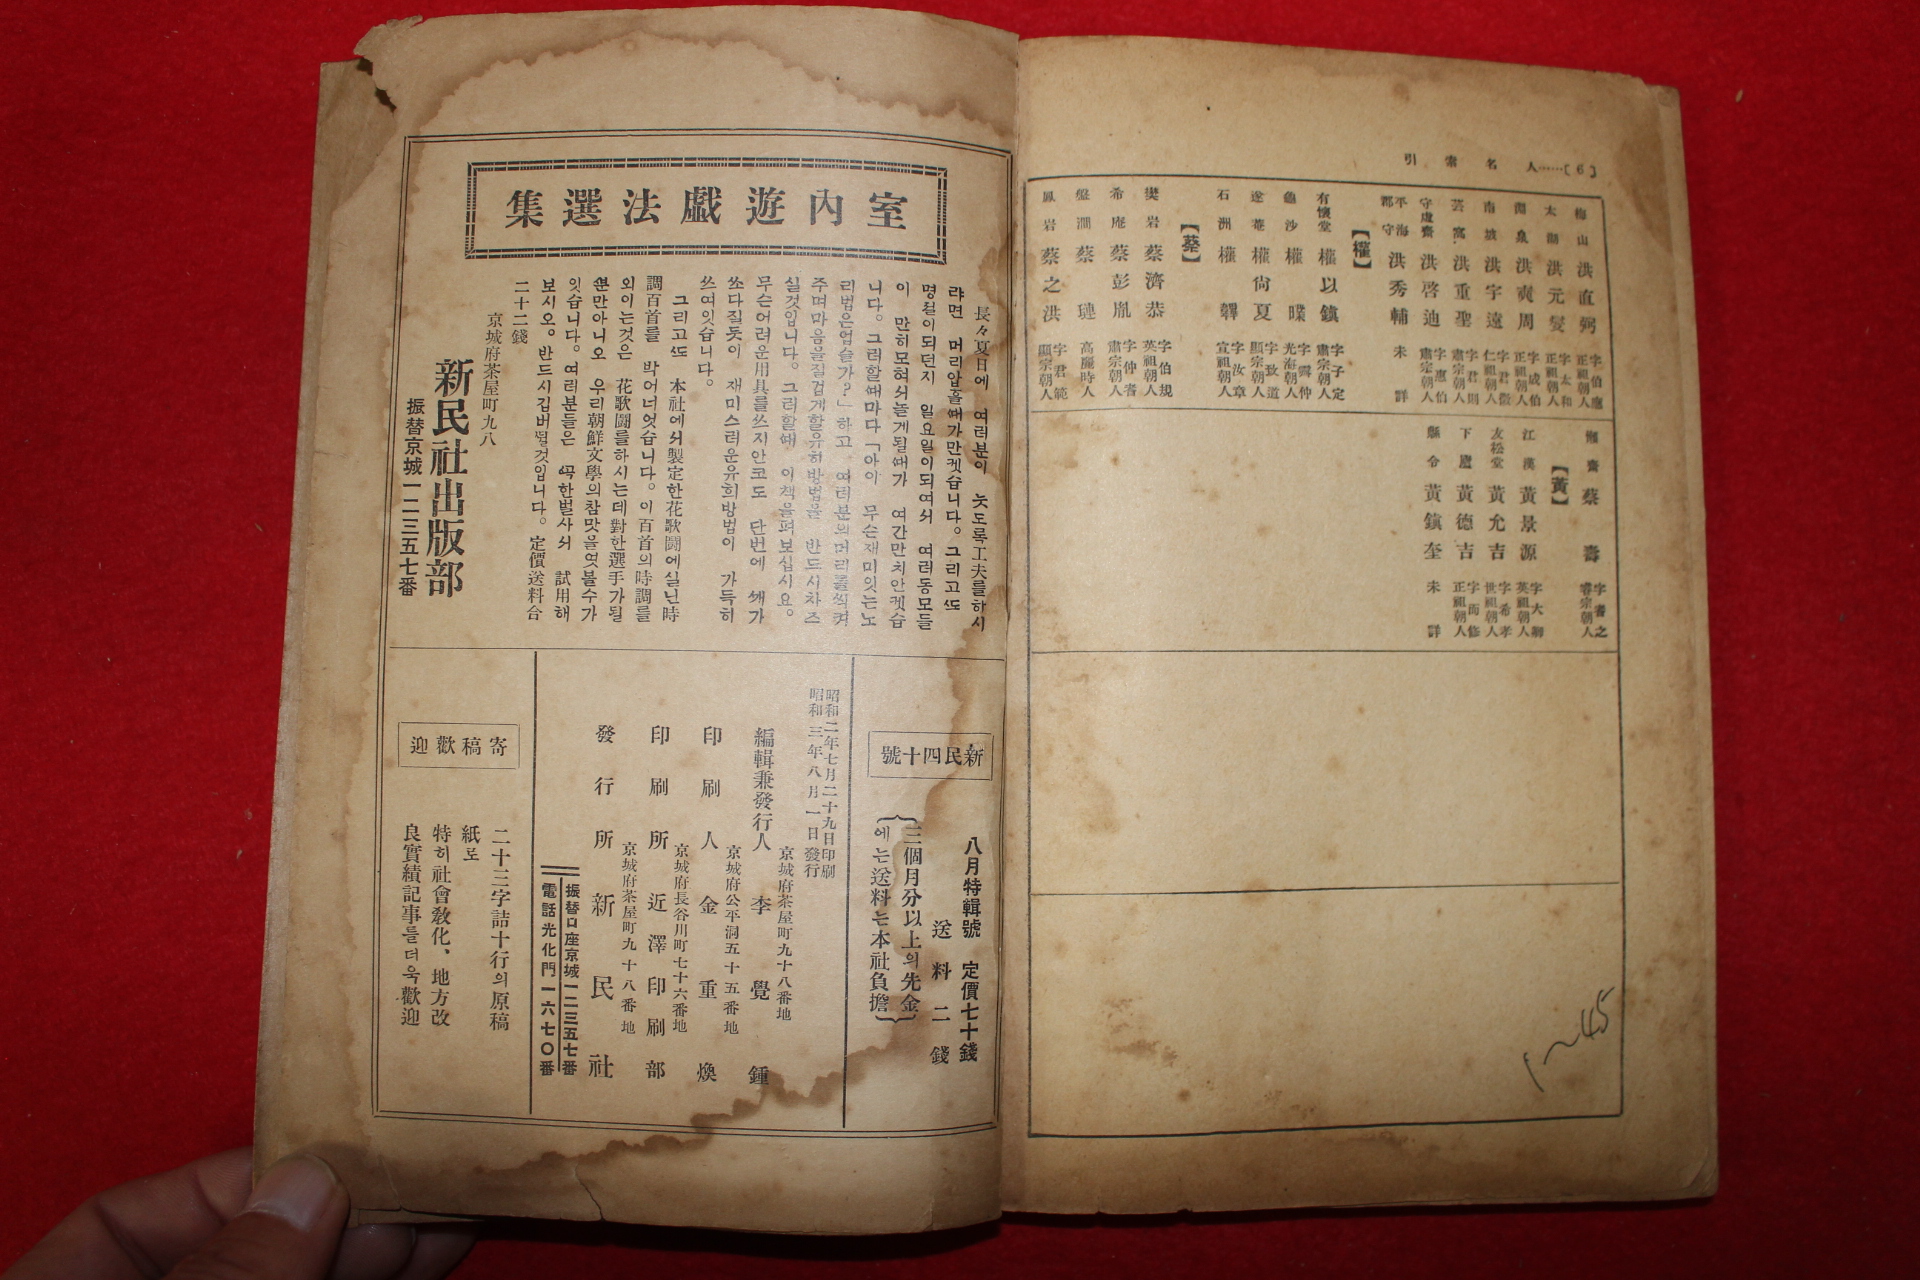 人名索引……〔6〕
梅山 洪直弼 字伯應 正祖朝人
太湖 洪元燮 字太和 正祖朝人
蘭泉 洪奭周 字成伯 正祖朝人
南坡 洪宇遠 字君徵 仁祖朝人
芸窩 洪重聖 字君則 肅宗朝人
守虛齋 洪啓迪 字惠伯 肅宗朝人
平海郡守 洪秀輔 未詳
【權】
有懷堂 權以鎭 字子定 肅宗朝人
龜沙 權㬦 字霽仲 光海朝人
遂菴 權尙夏 字致道 顯宗朝人
石洲 權韠 字汝章 宣祖朝人
【蔡】
樊岩 蔡濟恭 字伯規 英祖朝人
希庵 蔡彭胤 字仲耆 肅宗朝人
盤澗 蔡璉 高麗時人
鳳岩 蔡之洪 字君範 顯宗朝人
懶齋 蔡壽 字耆之 睿宗朝人
【黃】
江漢 黃景源 字大卿 英祖朝人
友松堂 黃允吉 字希孝 世祖朝人
下廬 黃德吉 字而修 正祖朝人
縣令 黃鎭奎 未詳
1~45
室內遊戱法選集
長々夏日에 여러분이 늣도록工夫를하시
랴면 머리압흘때가만켓습니다。그리고ᄯᅩ
명쳘이되던지 일요일이되여서 여러동모들
이 만히모혀서놀게될때가 여간만치안켓습
니다。그러할때마다「아이 무슨재미잇는노
리법은업슬가?」하고 여러분의머리를씩켜
주며마음을질겁게할유히방법을 반드시차즈
실것입니다。그러할때 이책을펴보십시요。
무슨어려운用具를쓰지안코도 단번에 ᄭᅢ가
쏘다질듯이 재미스러운유희방법이 가득히
쓰여잇습니다。
그리고ᄯᅩ 本社에서製定한花歌鬪에실닌時
調百首를 박어너엇습니다。이百首의時調를
외이는것은 花歌鬪를하시는데對한選手가될
ᄲᅮᆫ만아니오 우리朝鮮文學의참맛을엿볼수가
잇습니다。여러분들은 ᄭᅩᆨ한벌사서 試用해
보시오。반드시깁버ᄯᅱᆯ것입니다。定價送料合
二十二錢
京城府茶屋町九八
新民社出版部
振替京城一二三五七番
新民四十號
八月特輯號 定價七十錢
送料二錢
三個月分以上의先金
에는送料는本社負擔
昭和二年七月二十九日印刷
昭和三年八月一日發行
京城府茶屋町九十八番地
編輯兼發行人 李覺鍾
京城府公平洞五十五番地
印刷人 金重煥
京城府長谷川町七十六番地
印刷所 近澤印刷部
京城府茶屋町九十八番地
發行所 新民社
振替口座京城一二三五七番
電話光化門一六七〇番
寄稿歡迎
二十三字詰十行의原稿
紙로
特히社會敎化、地方改
良實績記事를더욱歡迎